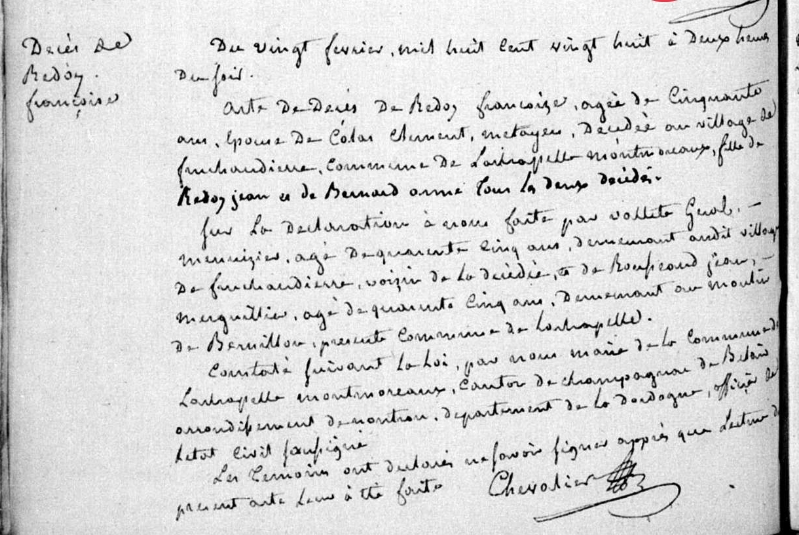 Décès de
Redoy.
françoise
Du vingt fevrier, mil huit cent vingt huit à Deux heures
Du Soir.
Acte De Decès De Redoy françoise, agée de Cinquante
ans, Epouse De Colas Clement, metayer, Decedée au village de
fruchaudierre, Commune De Lachapelle montmoreaux, fille de
Redoy jean et de Bernard anne tous les deux décédés.
Sur La Declaration à nous faite par vollete Geral, -
menuizier, agé De quarante Cinq ans, demeurant audit village
De fruchaudierre, voisin de la décédée, et de jean, -
agé de quarante Cinq ans, Demeurant au moulin
de presente Commune de Lachapelle.
Constaté suivant La Loi, par nous maire de la Commune de
Lachapelle montmoreaux, Canton de champagnac de Belair
arrondissement de nontron, departement de la Dordogne, officier de
Létat Civil soussigné
Les temoins ont declarés ne savoir signer apprès que Lecture du
present acte Leur à été faite Chevalier